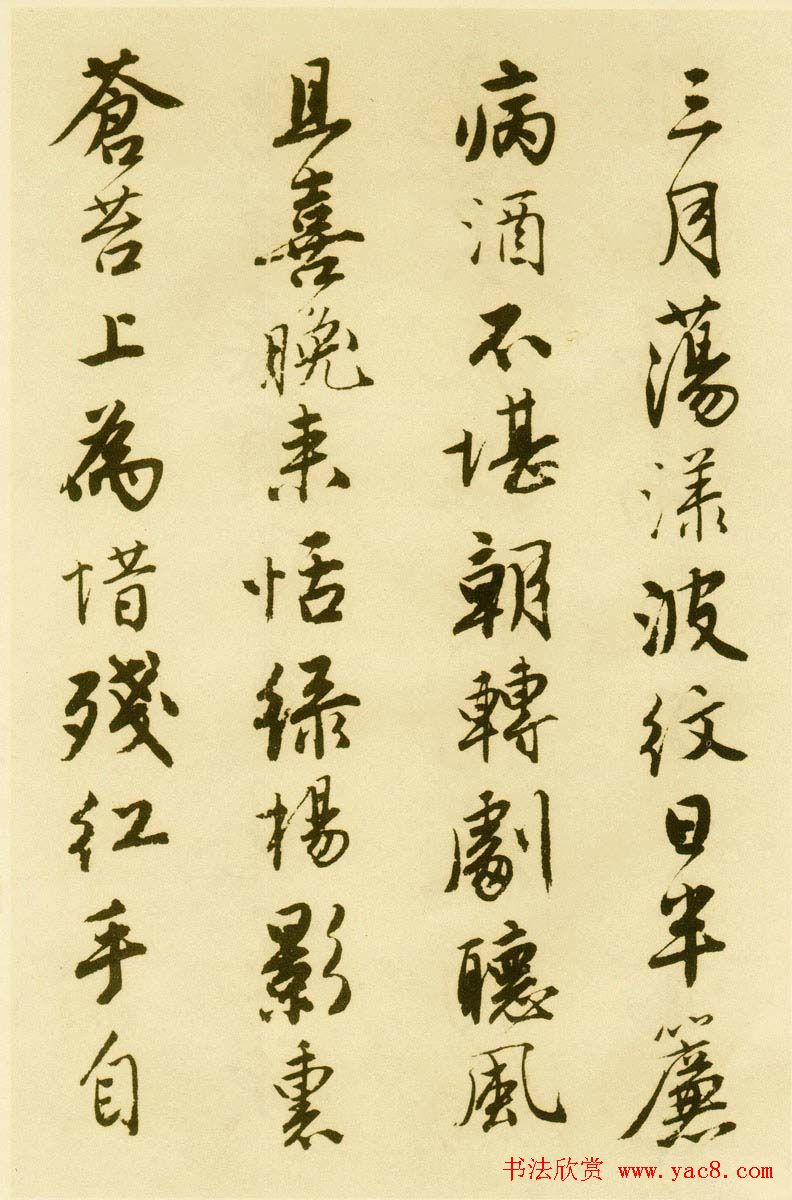 三月蕩漾波紋日半簾
病酒不堪朝轉劇聽風
且喜晚来恬緑楊影裏
蒼苔上為惜殘紅手自
书法欣赏 www.yac8.com